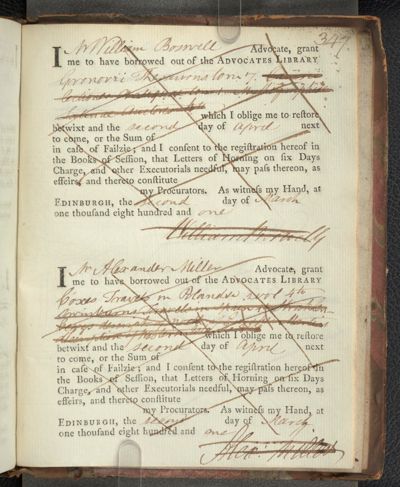 347
I Mr William Boswell Advocate, grant
me to have borrowed out of the ADVOCATES LIBRARY
Gronovii Thesaurus tom 7.
which I oblige me to reſtore
betwixt and the second day of April next
to come, or the Sum of
in caſe of Failzie; and I conſent to the regiſtration hereof in
the Books of Seſſion, that Letters of Horning on ſix Days
Charge, and other Executorials needful, may paſs thereon, as
effeirs, and thereto conſtitute
my Procurators. As witneſs my Hand, at
EDINBURGH, the second day of March
one thouſand eight hundred and one
William Boswell
I Mr Alexander Miller Advocate, grant
me to have borrowed out of the ADVOCATES LIBRARY
Coxes Travels in
which I oblige me to reſtore
betwixt and the second day of April next
to come, or the Sum of
in caſe of Failzie; and I conſent to the regiſtration hereof in
the Books of Seſſion, that Letters of Horning on ſix Days
Charge, and other Executorials needful, may paſs thereon, as
effeirs, and thereto conſtitute
my Procurators. As witneſs my Hand, at
EDINBURGH, the second day of March
one thouſand eight hundred and one
Alexr Miller